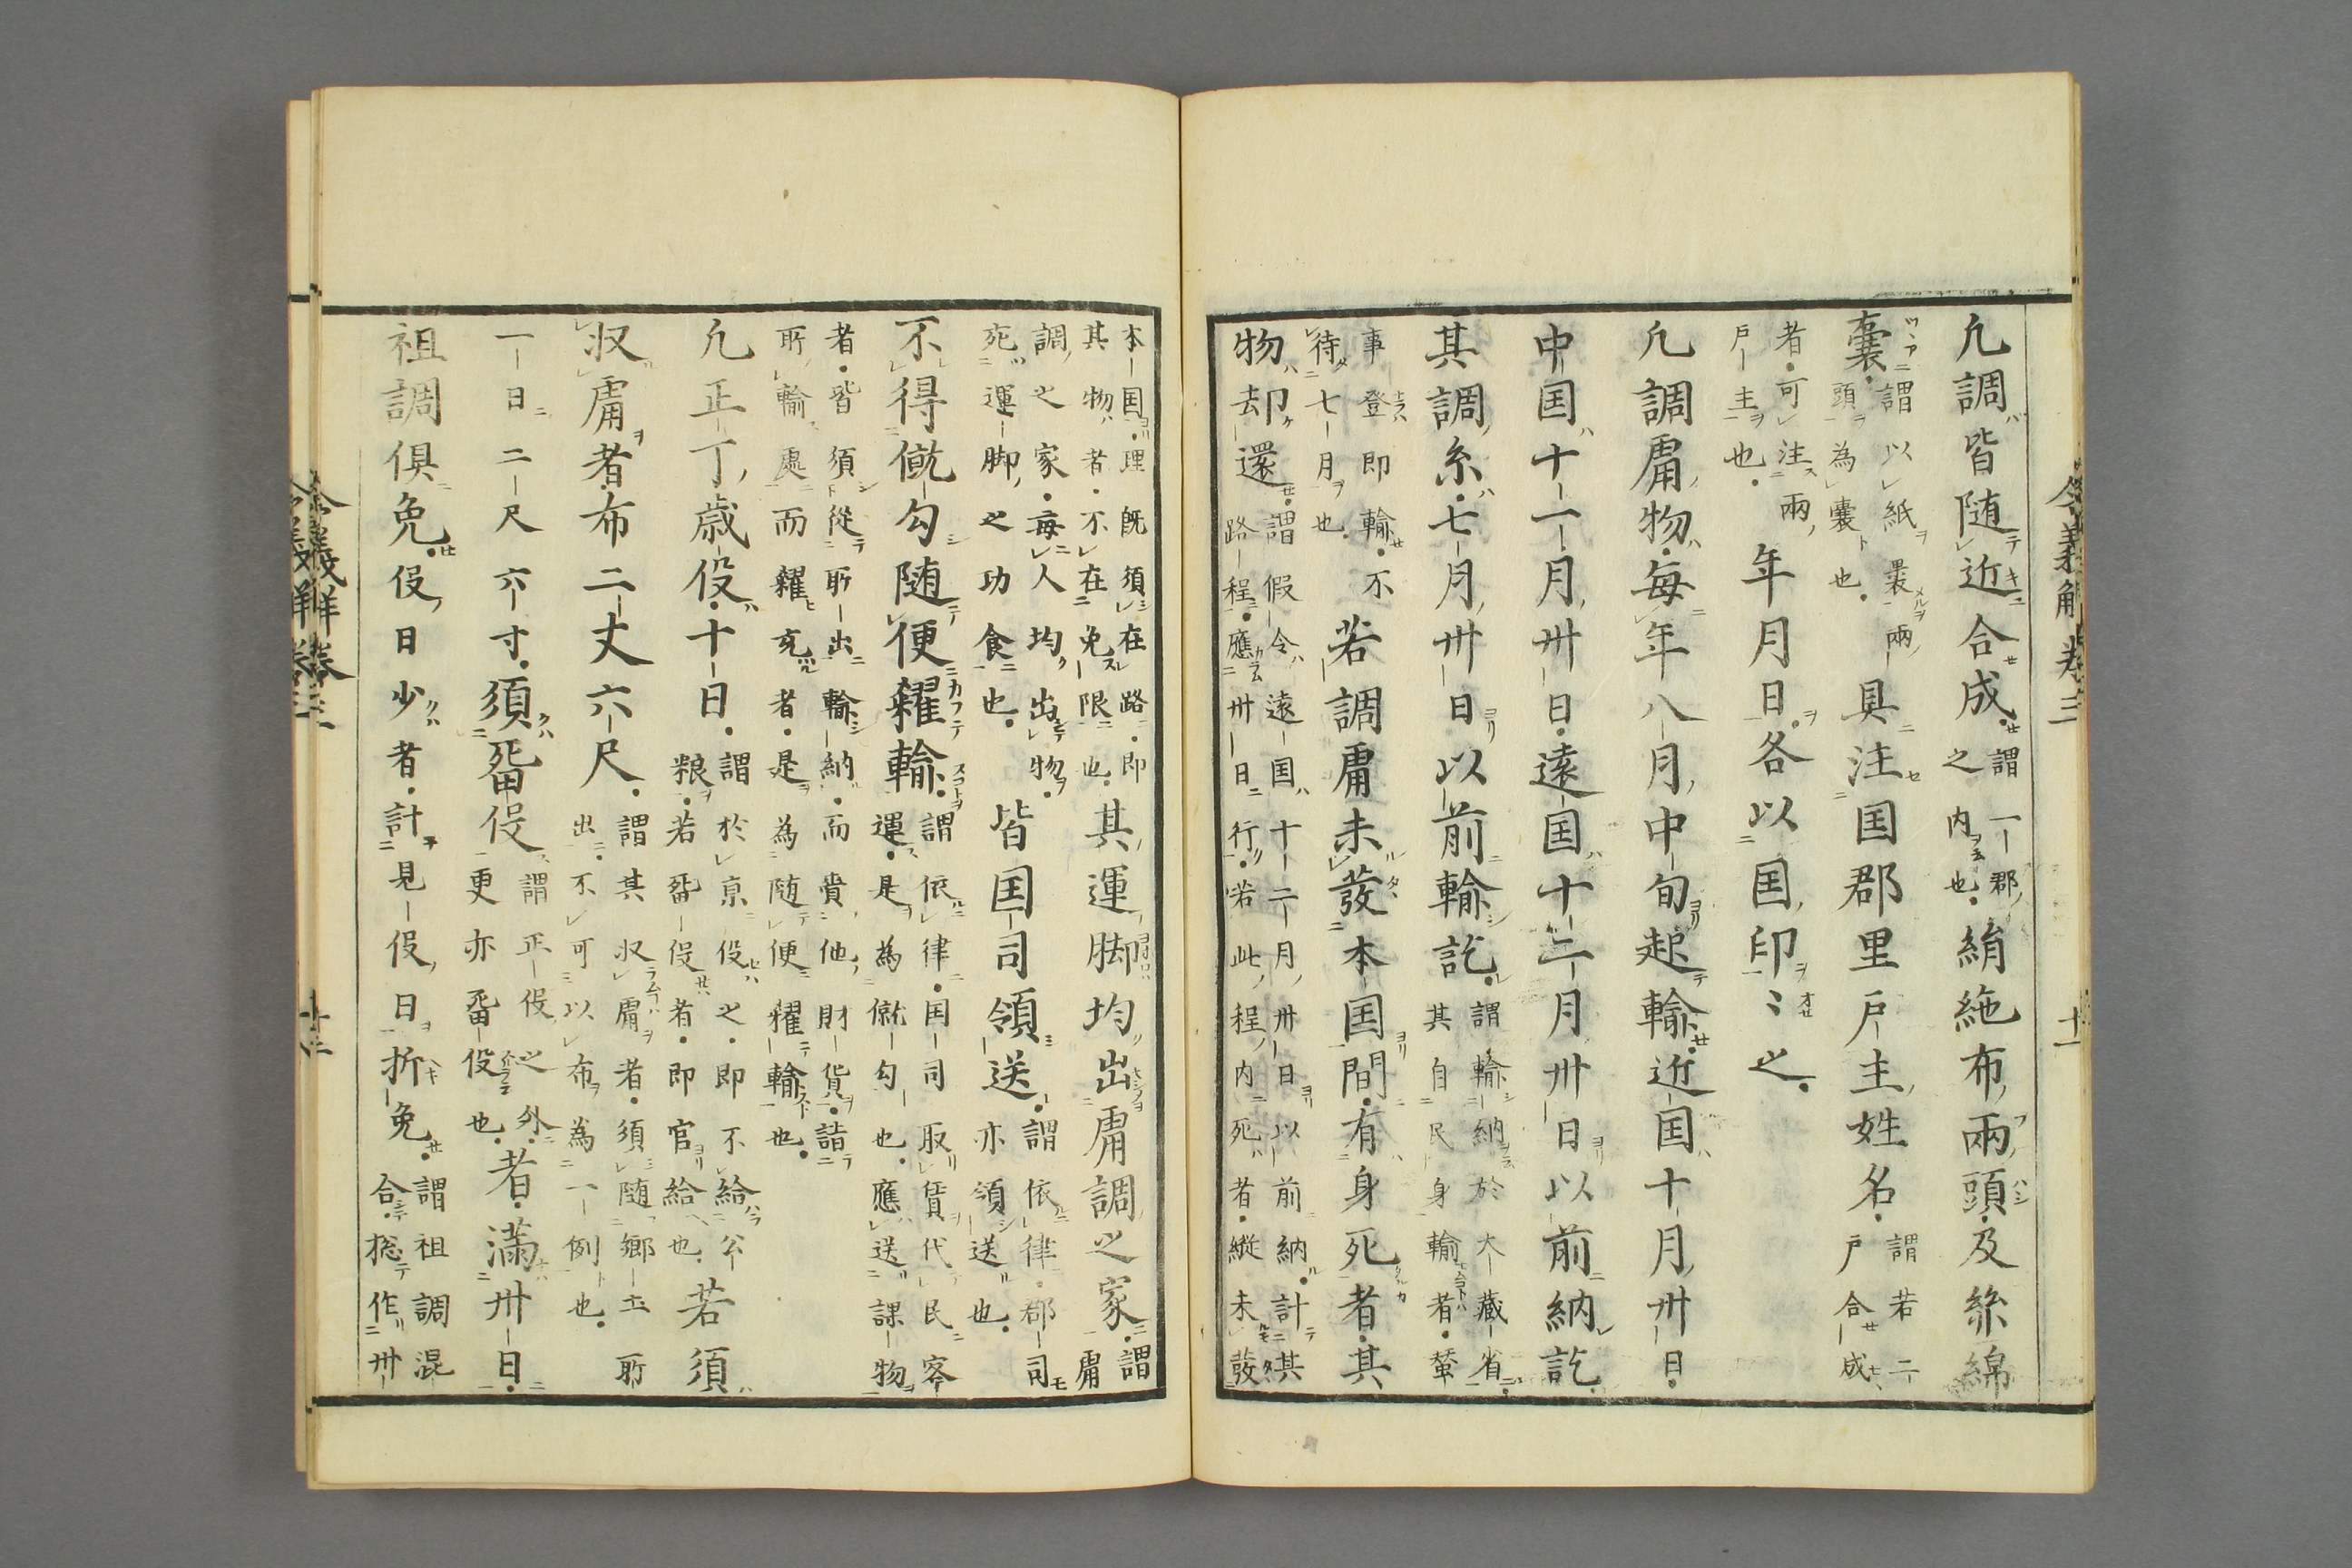 凢調皆随近合成謂一郡
之内也絹絁布兩頭及絲綿
囊謂以紙褁兩
頭為囊也具注国郡里戸主姓名謂若二
戸合成
者可注兩
戸主也年月日各以国印〻之
凢調庸物每年八月中旬起輸近国十月卅日
中国十一月卅日遠国十二月卅日以前納訖
其調糸七月卅日以前輸訖謂輸納於大藏省
其自民身輸者蚕
事登即輸不
待七月也若調庸未發本国間有身死者其
物却還謂假令遠国十二月卅日以前納計其
路程應卅日行若此程内死者縦未發
本国理既須在路即
其物者不在免限也其運脚均出庸調之家謂庸
調之家每人均出物
死運脚之功食也皆国司領送謂依律郡司
亦領送也
不得僦勾随便糴輸謂依律国司取賃代民客
運是為僦勾也應送課物
者皆須従所出輸納而賫他財貨詣
所輸處而糴充者是為随便糴輸也
凢正丁歳役十日謂於京役之即不給公
粮若畱役者即官給也若須
収庸者布二丈六尺謂其収庸者須随郷土所
出不可以布為一例也
一日二尺六寸須畱役謂正役之外
更亦畱役也者滿卅日
祖調俱免役日少者計見役日折免謂祖調混
合揔作卅
令義解卷三
十一
令義解卷三
十二